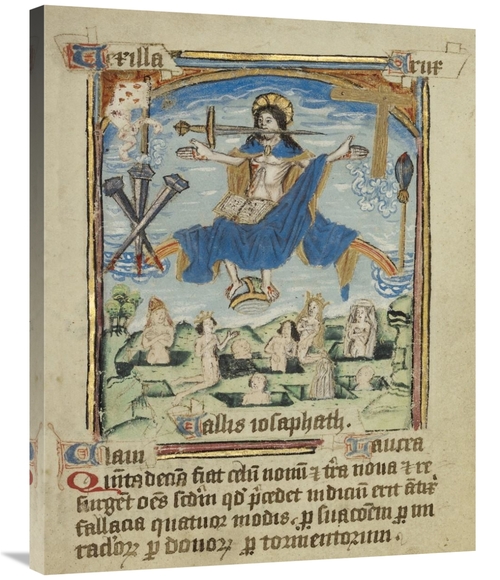 Vexilla Crux
Vallis iosaphath.
Claui Lancea
Quinta decia fiat celū nouū & tr̄a noua & re
surget oēs scdm̄ qd̓ p̄cedet iudiciū erit antix̄
fallacia quatuor modis. p̱ suacōem p̱ m
racl'oꝝ p̱ donoꝝ p̱ tormentorum.